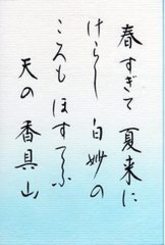 春すぎて 夏来に
けらし 白妙の
ころも ほすてふ
天の 香具山